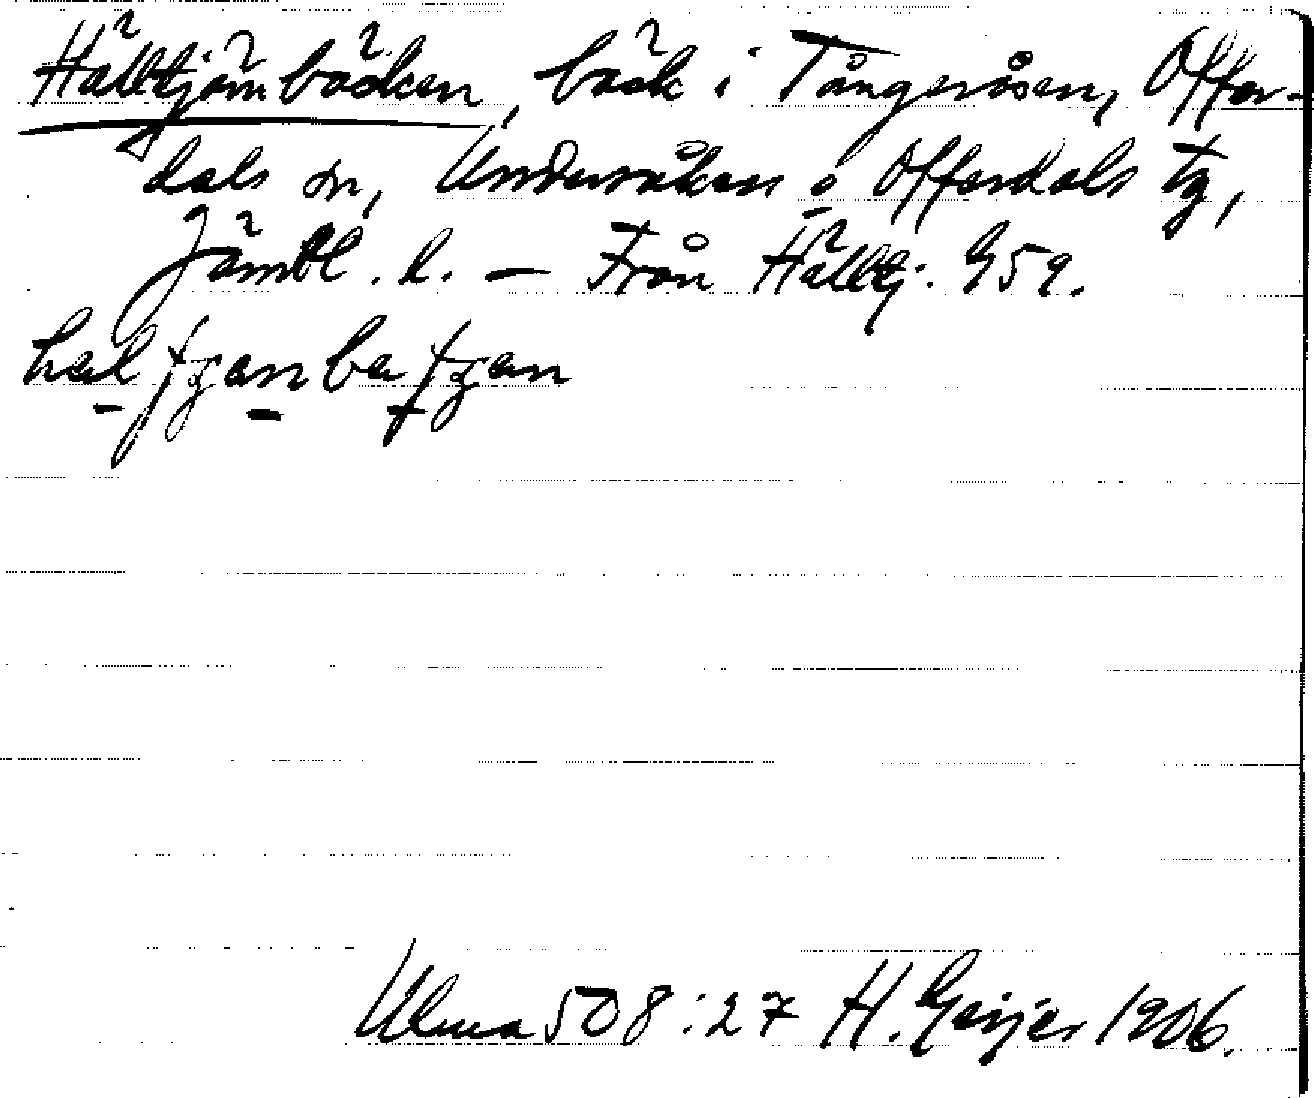 Hälltjärnbäcken, bäck i Tångeråsen, Offer-
dals sn, Undersåkers o Offerdals tg,
Jämtl. l. — Från Hälltj. 959.
Ulma 508:27 H. Geijer 1906.